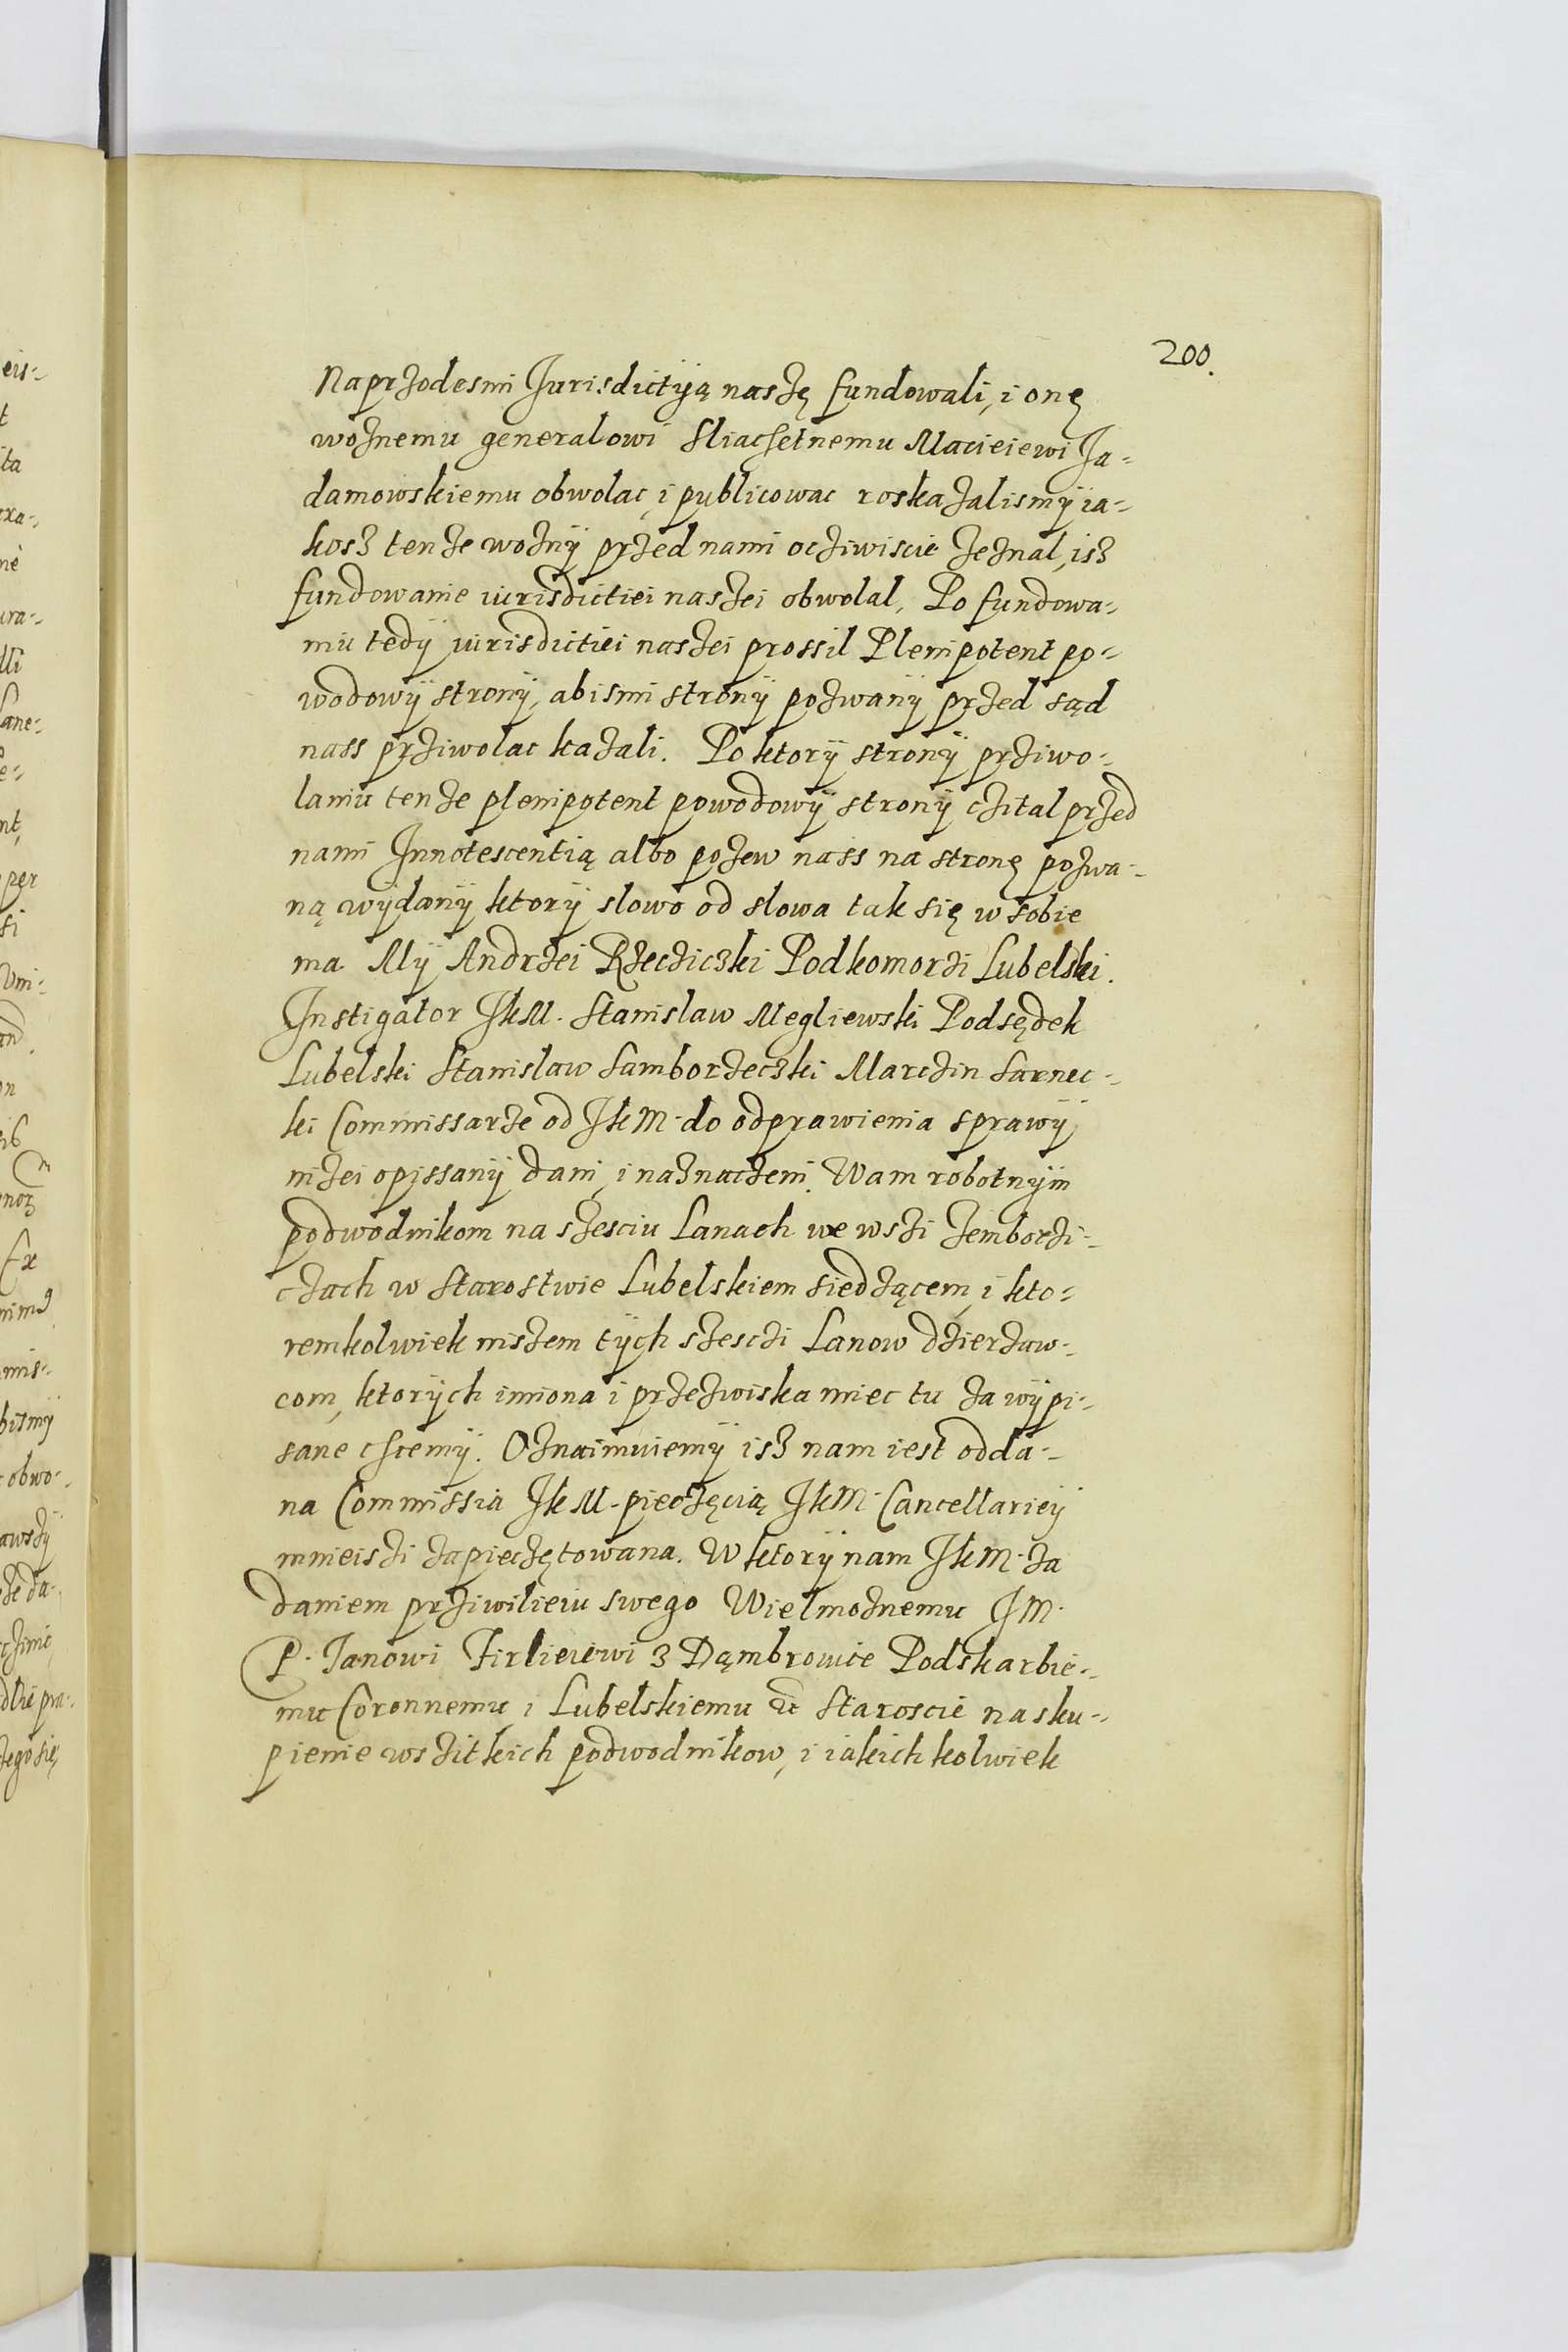 200.
Naprzodesmi Jurisdictyą naszę fundowali, i onę
woznemu generalowi Sliachetnemu Macieiewi Ja-
damowskiemu obwolac, i publicowac roskazalismy ia-
kosz tenze wozny przed nami ocziwiscie zeznal, isz
fundowanie iurisdictiei naszei obwolal, Po fundowa-
niu tedy iurisdictiei naszei prossil Plenipotent po-
wodowy strony, abismi strony pozwany przed sąd
nass prziwolac kazali. Po ktory strony prziwo-
laniu tenze plenipotent powodowy strony czital przed
nami Innotescentią albo pozew nass na stronę pozwa-
ną wydany ktory slowo od slowa tak się w sobie
ma My Andrzei Rzecziczki Podkomorzi Lubelski.
Instigator JkM. Stanislaw Megliewski Podsędek
Lubelski Stanislaw Samborzeczki Marczin Sarnec-
ki Commissarze od JkM. do odprawienia sprawy
nizei opissany dani, i naznaczeni. Wam robotnym
podwodnikom na szesciu Lanach we wszi Zemborzi-
czach w Starostwie Lubelskiem siedzącem, i kto-
remkolwiek niszem tych szesczi Lanow dzierzaw-
com, ktorych imiona i przezwiska miec tu za wypi-
sane chcemy. Oznaimuiemy isz nam iest odda-
na Commissia JkM. pieczęcią JkM. Cancellariey
mnieiszi zapieczętowana. W ktory nam JkM. za
daniem prziwilieiu swego Wielmoznemu JM.
P. Janowi Firlieiewi z Dąmbrowice Podskarbie-
mu Coronnemu, i Lubelskiemu etc Staroscie na sku-
pienie wszitkich podwodnikow, i iakichkolwiek